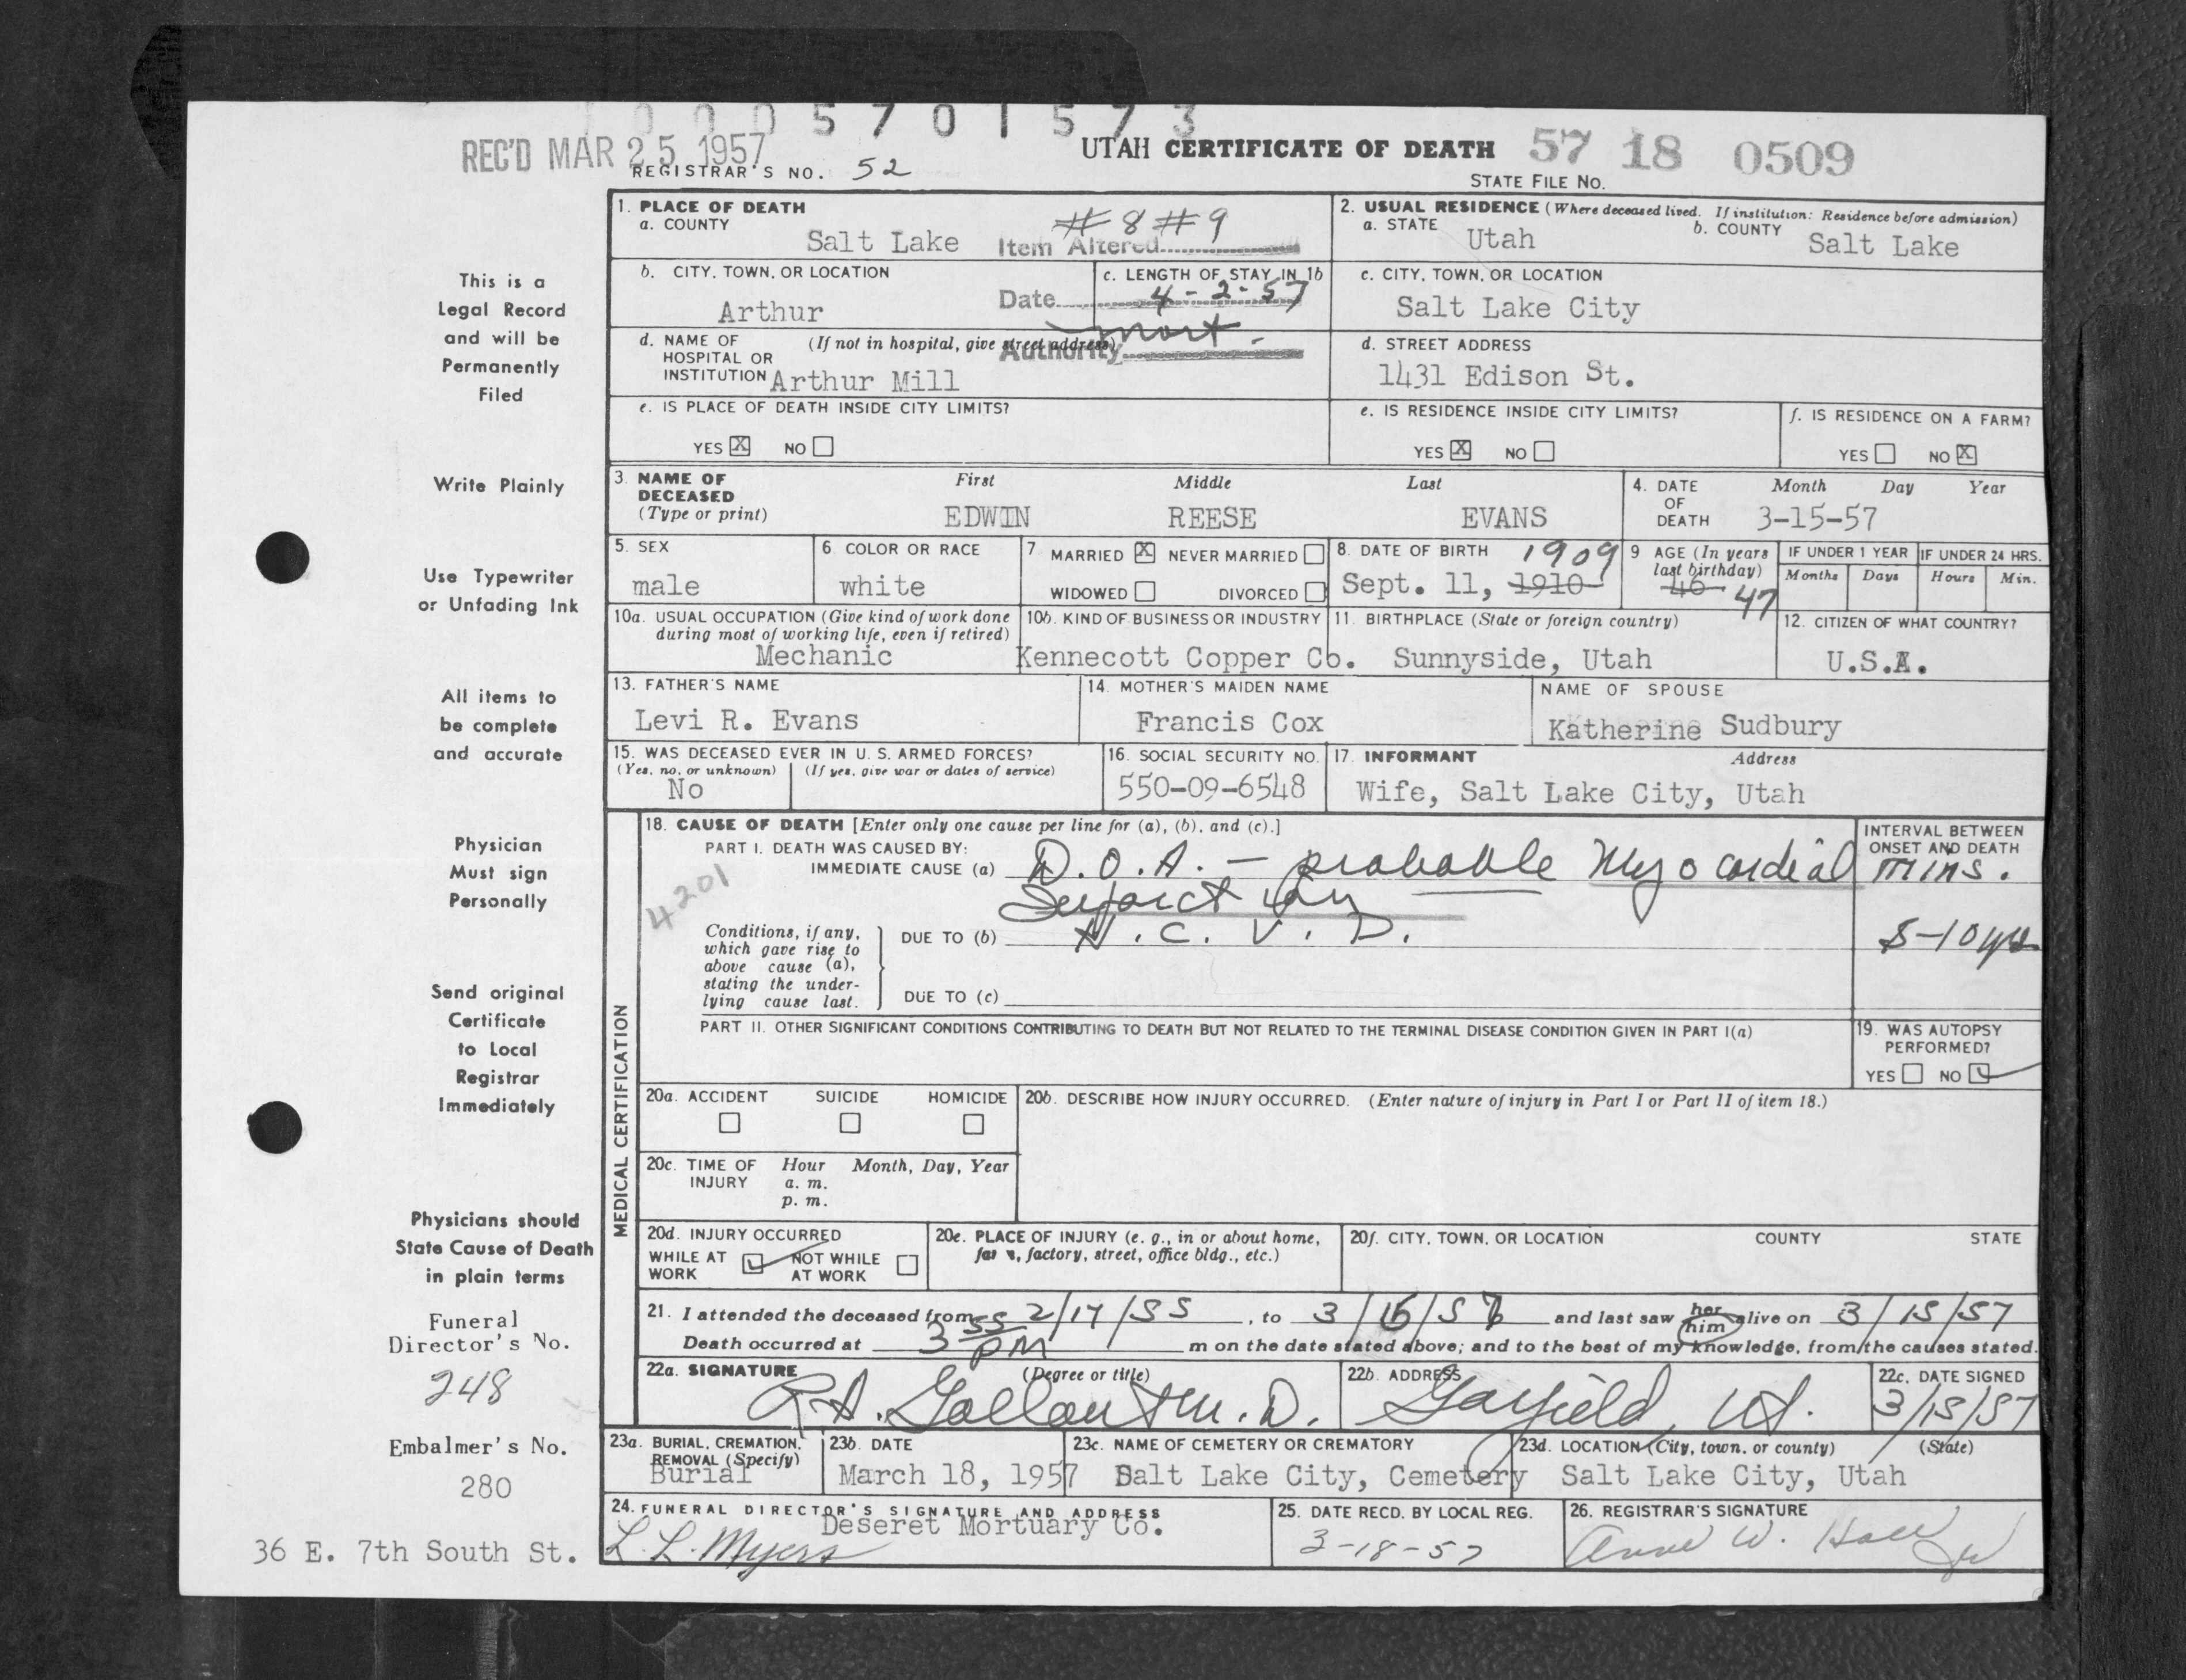 0 0 0 5 7 0 1 5 7 3
REC'D MAR 25 1957
REGISTRAR'S NO. 52
UTAH CERTIFICATE OF DEATH 57 18 0509
STATE FILE NO.
This is a
Legal Record
and will be
Permanently
Filed
Write Plainly
Use Typewriter
or Unfading Ink
All items to
be complete
and accurate
Physician
Must sign
Personally
Send original
Certificate
to Local
Registrar
Immediately
Physicians should
State Cause of Death
in plain terms
Funeral
Director's No.
248
Embalmer's No.
280
36 E. 7th South St.
1. PLACE OF DEATH
a. COUNTY
Salt Lake
#8 #9
Item Altered
2. USUAL RESIDENCE (Where deceased lived. If institution: Residence before admission)
a. STATE Utah
b. COUNTY Salt Lake
b. CITY, TOWN, OR LOCATION
Arthur
c. LENGTH OF STAY IN 1b
Date 4-2-57
c. CITY, TOWN, OR LOCATION
Salt Lake City
d. NAME OF HOSPITAL OR INSTITUTION (If not in hospital, give street address)
Arthur Mill
Authority mort.
d. STREET ADDRESS
1431 Edison St.
e. IS PLACE OF DEATH INSIDE CITY LIMITS?
YES X NO
e. IS RESIDENCE INSIDE CITY LIMITS?
YES X NO
f. IS RESIDENCE ON A FARM?
YES NO X
3. NAME OF DECEASED (Type or print)
First Middle Last
EDWIN REESE EVANS
4. DATE OF DEATH
Month Day Year
3-15-57
5. SEX
male
6. COLOR OR RACE
white
7 MARRIED X NEVER MARRIED
WIDOWED DIVORCED
8. DATE OF BIRTH 1909
Sept. 11, 1910
9 AGE (In years last birthday)
46 47
IF UNDER 1 YEAR
Months Days
IF UNDER 24 HRS.
Hours Min.
10a. USUAL OCCUPATION (Give kind of work done during most of working life, even if retired)
Mechanic
10b. KIND OF BUSINESS OR INDUSTRY
Kennecott Copper Co.
11. BIRTHPLACE (State or foreign country)
Sunnyside, Utah
12. CITIZEN OF WHAT COUNTRY?
U.S.A.
13. FATHER'S NAME
Levi R. Evans
14. MOTHER'S MAIDEN NAME
Francis Cox
NAME OF SPOUSE
Katherine Sudbury
15. WAS DECEASED EVER IN U. S. ARMED FORCES?
(Yes, no, or unknown) (If yes, give war or dates of service)
No
16. SOCIAL SECURITY NO.
550-09-6548
17. INFORMANT Address
Wife, Salt Lake City, Utah
MEDICAL CERTIFICATION
18. CAUSE OF DEATH [Enter only one cause per line for (a), (b), and (c).]
PART I. DEATH WAS CAUSED BY:
IMMEDIATE CAUSE (a) D.O.A. - probable Myocardial
4201
INTERVAL BETWEEN ONSET AND DEATH
mins.
Conditions, if any, which gave rise to above cause (a), stating the underlying cause last.
DUE TO (b) H.C.V.D.
5-10 yrs
DUE TO (c)
PART II. OTHER SIGNIFICANT CONDITIONS CONTRIBUTING TO DEATH BUT NOT RELATED TO THE TERMINAL DISEASE CONDITION GIVEN IN PART I(a)
19. WAS AUTOPSY PERFORMED?
YES NO
20a. ACCIDENT SUICIDE HOMICIDE
20b. DESCRIBE HOW INJURY OCCURRED. (Enter nature of injury in Part I or Part II of item 18.)
20c. TIME OF INJURY Hour Month, Day, Year
a. m.
p. m.
20d. INJURY OCCURRED
WHILE AT WORK NOT WHILE AT WORK
20e. PLACE OF INJURY (e. g., in or about home, farm, factory, street, office bldg., etc.)
20f. CITY, TOWN, OR LOCATION COUNTY STATE
21. I attended the deceased from 2/17/55, to 3/15/57 and last saw her him alive on 3/15/57
Death occurred at 3 55 PM m on the date stated above; and to the best of my knowledge, from the causes stated.
22a. SIGNATURE (Degree or title)
R.A. Gallant M.D.
22b. ADDRESS
Garfield, Ut.
22c. DATE SIGNED
3/15/57
23a. BURIAL, CREMATION, REMOVAL (Specify)
Burial
23b. DATE
March 18, 1957
23c. NAME OF CEMETERY OR CREMATORY
Salt Lake City, Cemetery
23d. LOCATION (City, town, or county) (State)
Salt Lake City, Utah
24. FUNERAL DIRECTOR'S SIGNATURE AND ADDRESS
Deseret Mortuary Co.
L. L. Myers
25. DATE RECD. BY LOCAL REG.
3-18-57
26. REGISTRAR'S SIGNATURE
Anne W.